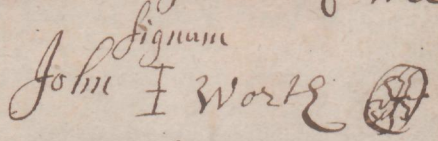 signum
John I Worth